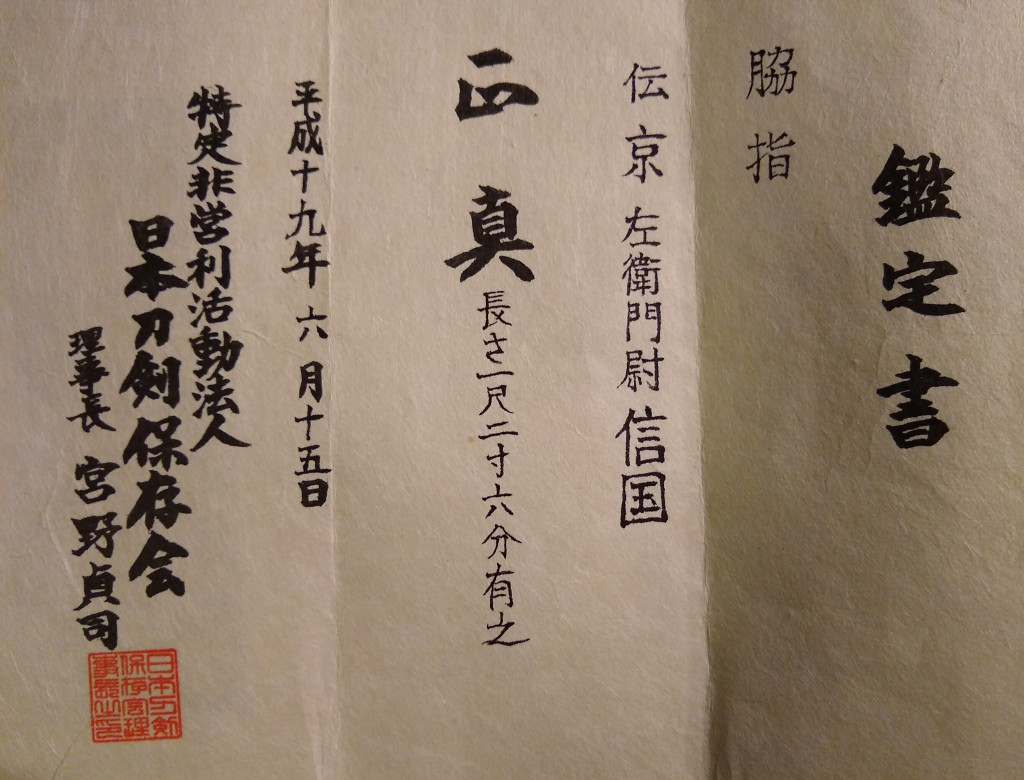 鑑定書
脇指
伝京左衛門尉信国
正真長さ一尺二寸六分有之
平成十九年六月十五日
特定非営利活動法人
日本刀剣保存会
理事長宮野貞司